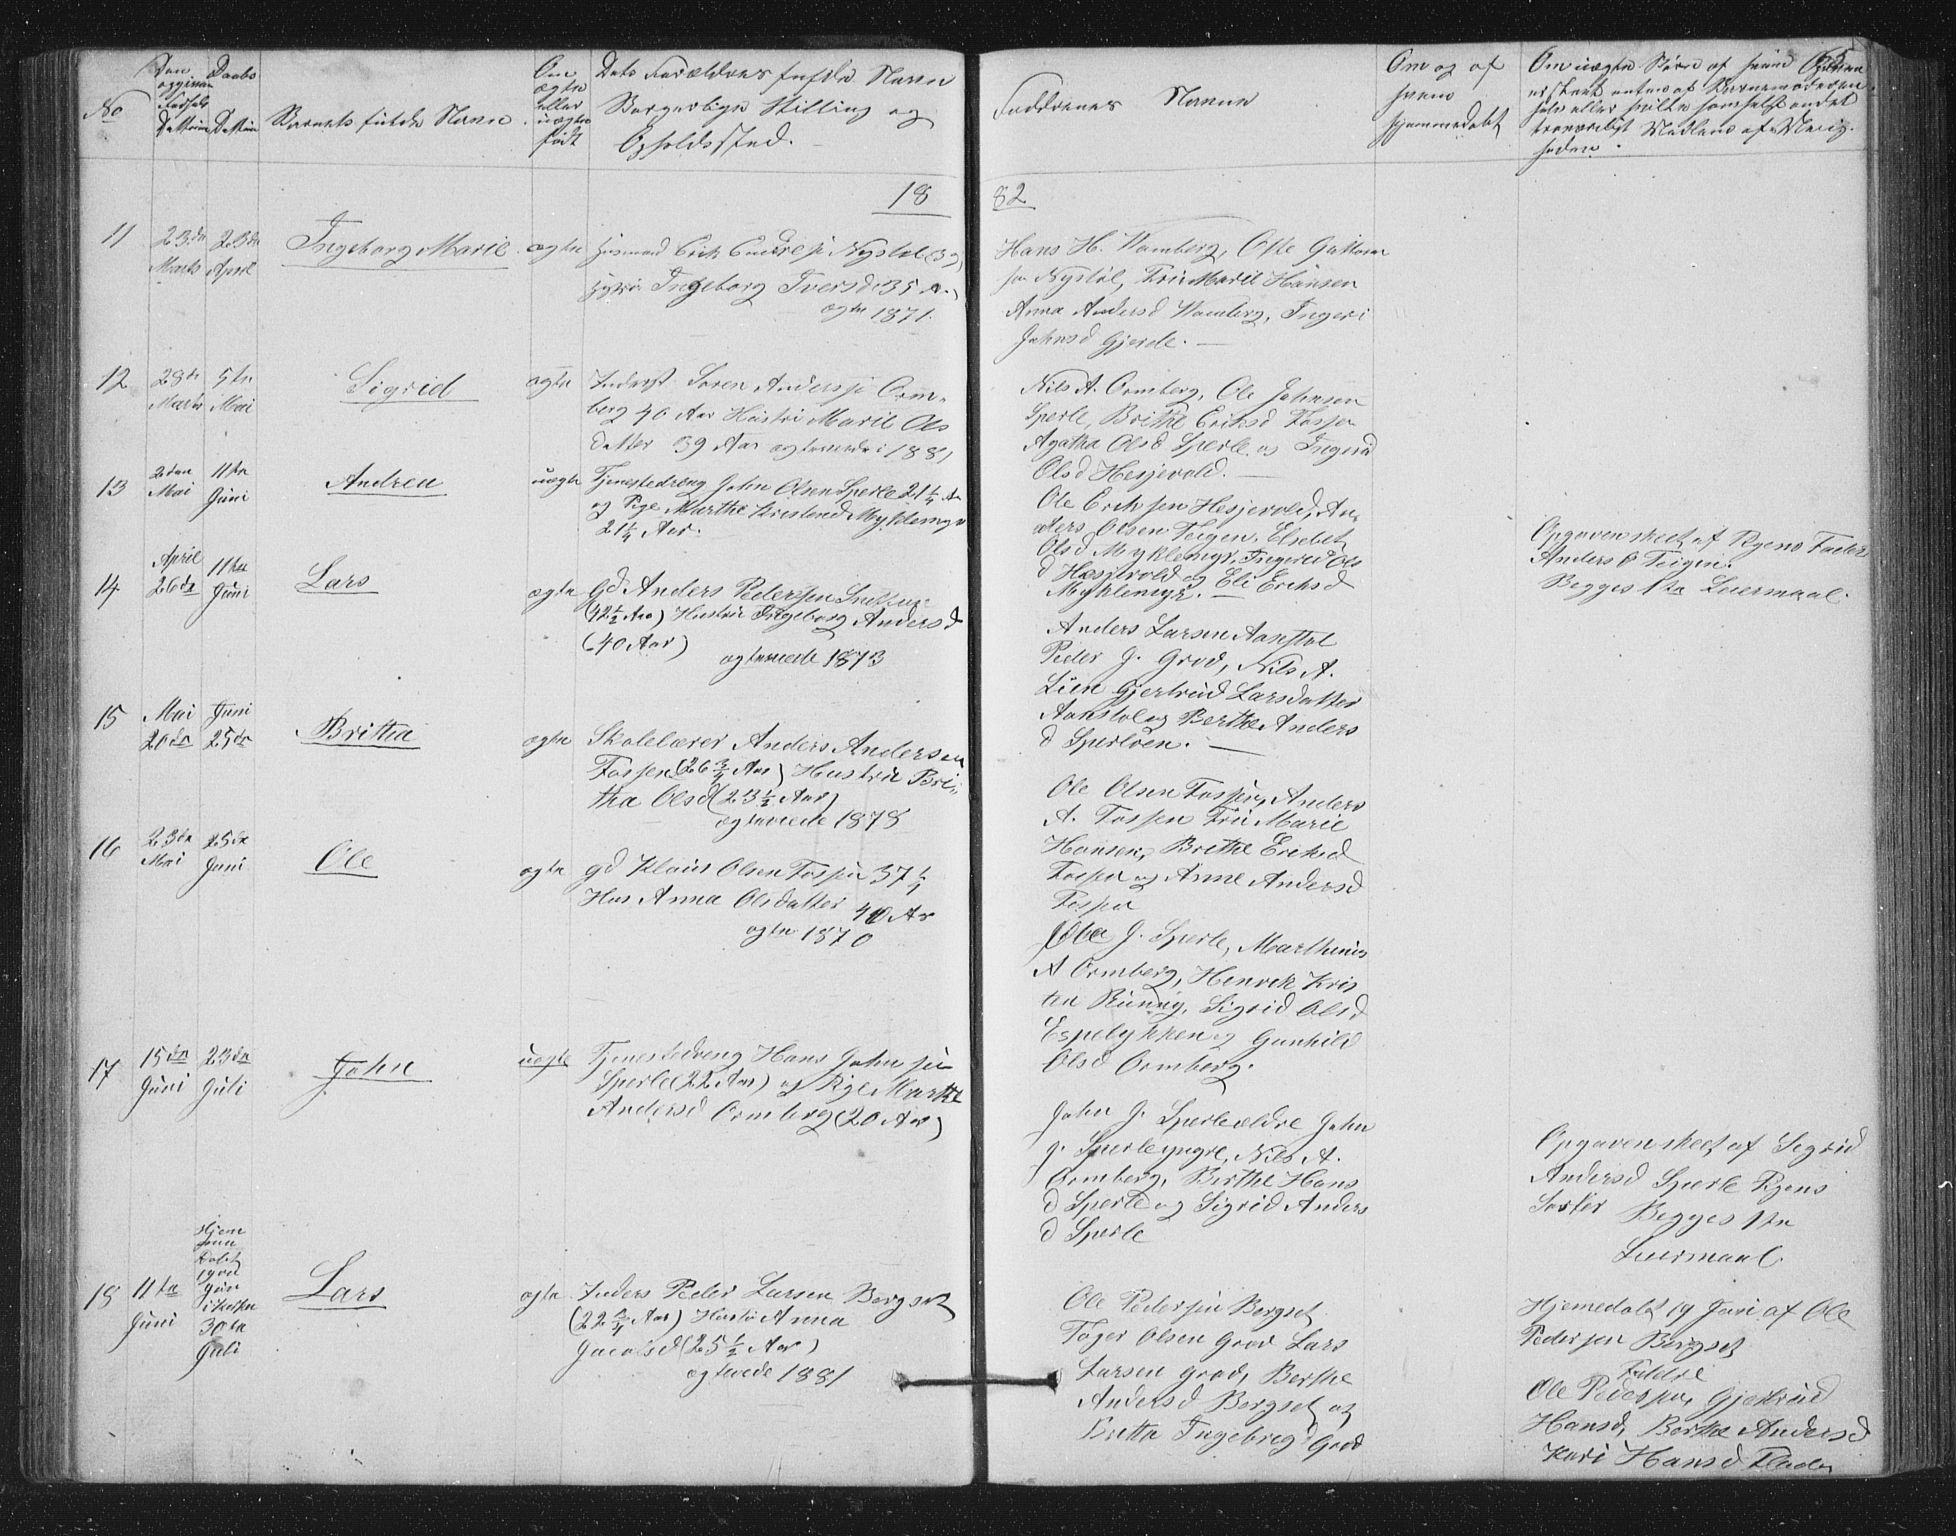 65
No
Den opgivne Fødsels Dattum
Daabs Dattum
Barnets fulde Navn
Om ægte eller uægte født
Dets Forældres fulde Navn
Borgerlige Stilling og
Opholdssted.
Faddernes Navne
Om og af hvem hjemmedøbt
Om uægte Børn af hvem
er skeet enten af Barnemoderen
selv eller
troværdigt Medlem af Menig-
heden.
1882
11
23de Marts
23de April
Ingeborg Marie
ægte
Husmand Erik Nystøl (39)
Hustru Ingeborg Iversd 35 A.
ægtev 1871.
Hans H. Wamberg, Ole Guttorm
sen Nystøl, Fru Marie Hansen
Anna Andersd Wamberg, Ingeri
Johnsd Gjerde.
12
28de Marts
5te Mai
Sigrid
ægte
Inderst Søren Anderssen Orm-
berg 40 Aar Hustru Marie Ols
datter 39 Aar ægteviede i 1881
Nils A. Ormberg, Ole Johnsen
Sperle, Brithe Eriksd Fossen
Agatha Olsd Sperle og Ingerid
Olsd Hesjevold.
13
2den Mai
11te Juni
Andrea
uægte
Tjenestedreng John Olsen Sperle 21 1/4 A
og Pige Marthe Kristensd Myklemyr
21 1/4 Aar.
Ole Eriksen Hesjevold, An
ders Olsen Teigen, Elsebet
Olsd Myklemyr, Ingerid Ols
d Hesjevold og Eli Eriksd
Myklemyr.
Opgaven skeet af Pigens Fader
Anders O Teigen.
Begges 1te Leiermaal.
14
April 26de
11te Juni
Lars
ægte
Gd Anders Pedersen
(42 1/2 Aar) Hustru Ingeborg Andersd
(40 Aar)
ægteviede 1873
Anders Larsen Aanstøl
Peder J. Grov, Nils A.
Lien Gjertrud Larsdatter
Aanstøl og Berthe Anders
d Sperleøen.
15
Mai 20de
Juni 25de
Britha
ægte
Skolelærer Anders Andersen
Fossen (26 3/4 Aar) Hustru Bri-
tha Olsd (23 1/2 Aar)
ægteviede 1878
Ole Olsen Fossen, Anders
A. Fossen Fru Marie
Hansen, Brithe Eriksd
Fossen og Anne Andersd
Fossen
16
23de Mai
25de Juni
Ole
ægte
Gd Klaus Olsen Fossen 37 1/4
Hus Anna Olsdatter 40 Ar
ægtev 1870
Ole J. Sperle, Marthinus
A Ormberg, Henrik Kris
ten Rünnig, Sigrid Olsd
Espelykken og Gunhild
Olsd Ormberg.
17
15de Juni
23de Juli
John
uægte
Tjenestedreng Hans Johnsen
Sperle (22 Aar) og Pige Marthe
Andersd Ormberg (20 Ar)
John J. Sperle ældre John
J. Sperle yngre, Nils A.
Ormberg, Birthe Hans
d Sperle og Sigrid Anders
d Sperle
Opgaven skeet af Sigrid
Andersd Sperle Pigens
Søster
Begges 1te
Leiermaal
18
11te Juni
Hjem
døbt
19de
Juni
i Kirken
30te
Juli
Lars
ægte
Inders Peder Larsen Bergset
(22 3/4 Aar) Hustru Anna
Jacobsd (25 1/2 Aar)
ægtviede 1881
Ole Pedersen Bergset
Tøger Olsen Grov Lars
Larsen Grov, Berthe
Andersd Bergset og
Britta Ingebregd Grov
Hjemedøbt 19 Juni af Ole
Pedersen Bergset
Faddre
Ole Pedersen, Gjertrud
Hansd, Berthe Andersd
Kari Hansd